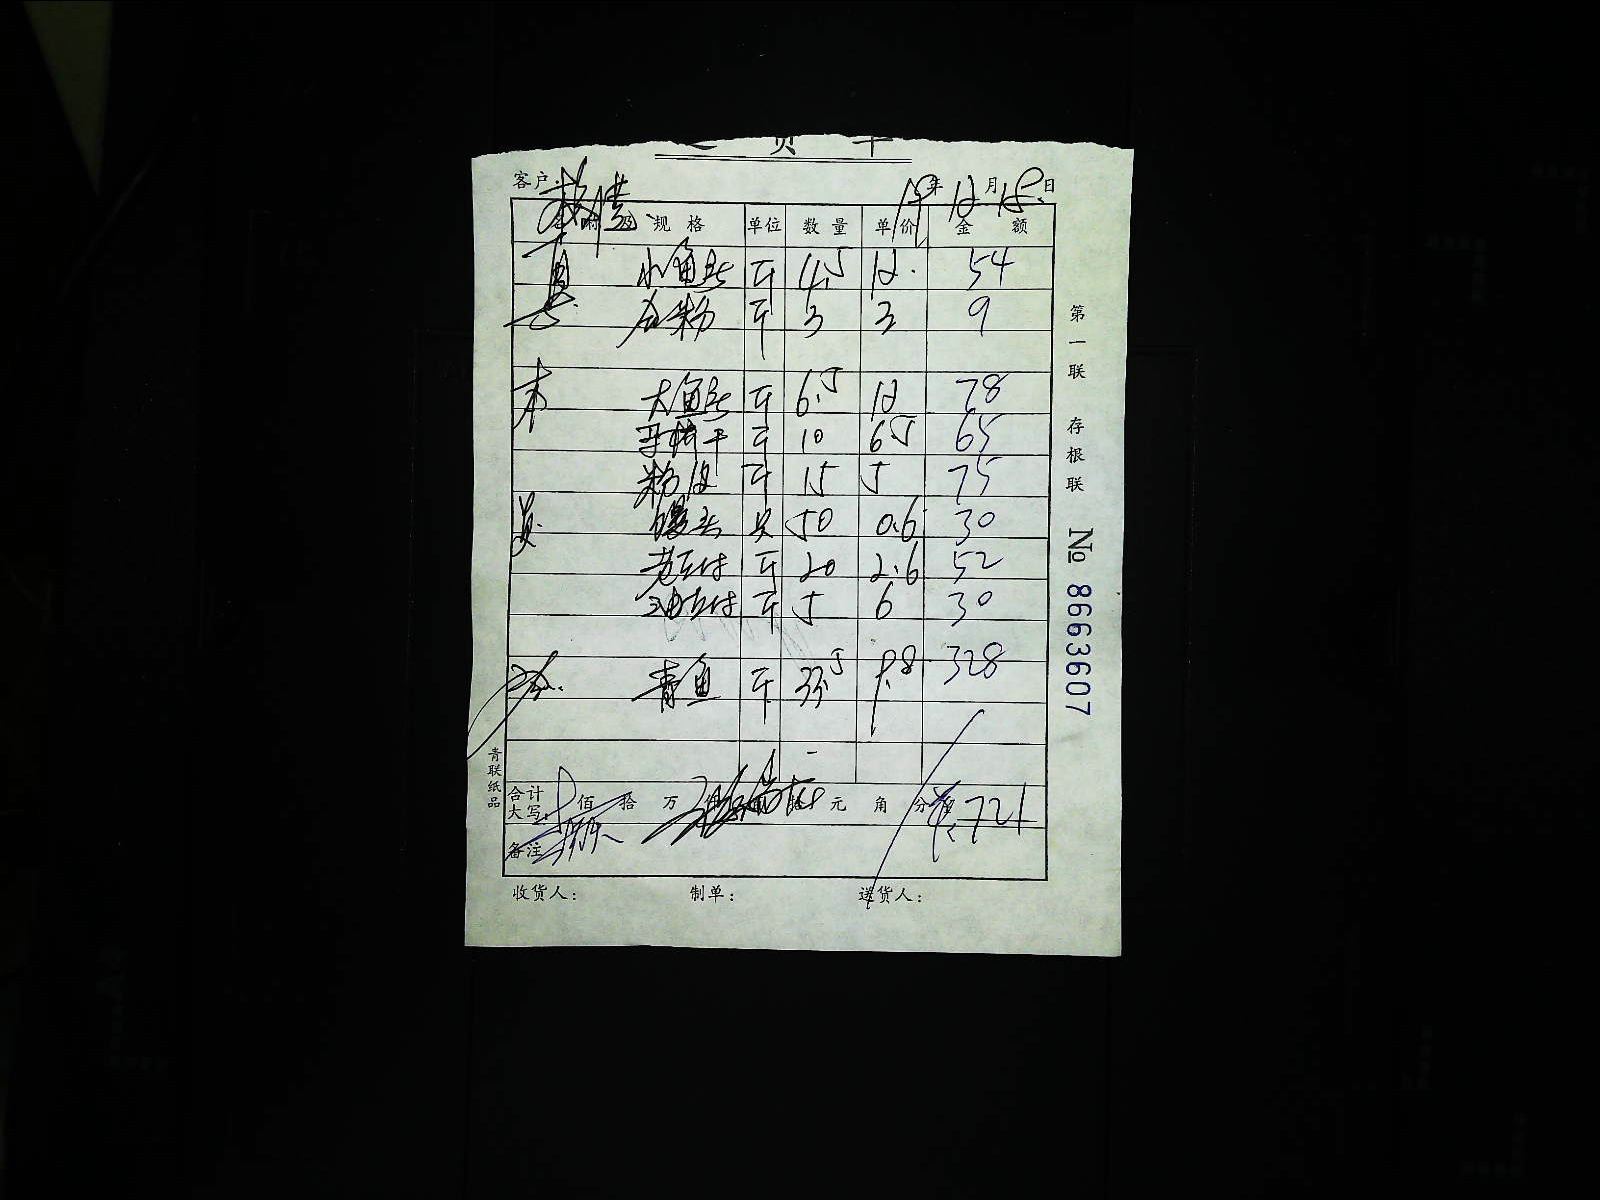 客户:
年 12 月 18 日
规格 单位 数量 单价 金额
小鱼头 斤 4.5 12. 54
斤 3 3 9
大鱼头 斤 6.5 12 78
斤 10 6.5 65
粉皮 斤 15 5 75
馒头 只 50 0.6 30
老豆付 斤 20 2.6 52
油豆付 斤 5 6 30
青鱼 斤 33.5 9.8 328
合计
大写: 佰 拾 万 元 角 分 ¥: 721
备注
收货人: 制单: 送货人:
第一联 存根联
№ 8663607
青联纸品